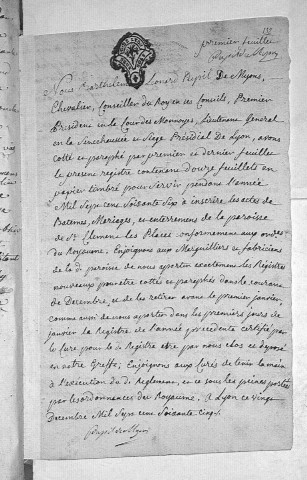 premier feuillet
Pupil de Myons
Nous Barthelemy Leonard Pupil De Myons,
Chevalier, Conseiller du Roy en ses Conseils, Premier
President en la Cour des Monnoyes, Lieutenant General
en la Senechaussée et Siege Présidial De Lyon, avons
cotté et paraphé par premier et dernier feuillet
le present registre contenant Douze feuillets en
papier timbré pour servir pendant l'année
Mil sept cent soixante six a inscrire les actes de
Batemes, Mariages, et enterremens de la paroisse
de St Clement les Places conformement aux ordces
du Royaume. Enjoignons aux Marguilliers et fabriciens
de la de paroisse de nous apporter exactement les Registres
nouveaux pour etre cottés et paraphés dans le courant
de Decembre, et de les retirer avant le premier janvier,
comme aussi de nous apporter dans les premiers jours de
janvier le Registre de l'année precedente certifié par
le Curé pour le d. Registre etre par nous clos et deposé
en notre Greffe; Enjoignons aux Curés de tenir la main
à l'execution du d. Reglement, et ce sous les peines portées
par les ordonnances du Royaume. A Lyon ce vingt
Decembre Mil sept cent soixante cinq.
Pupil de Myons